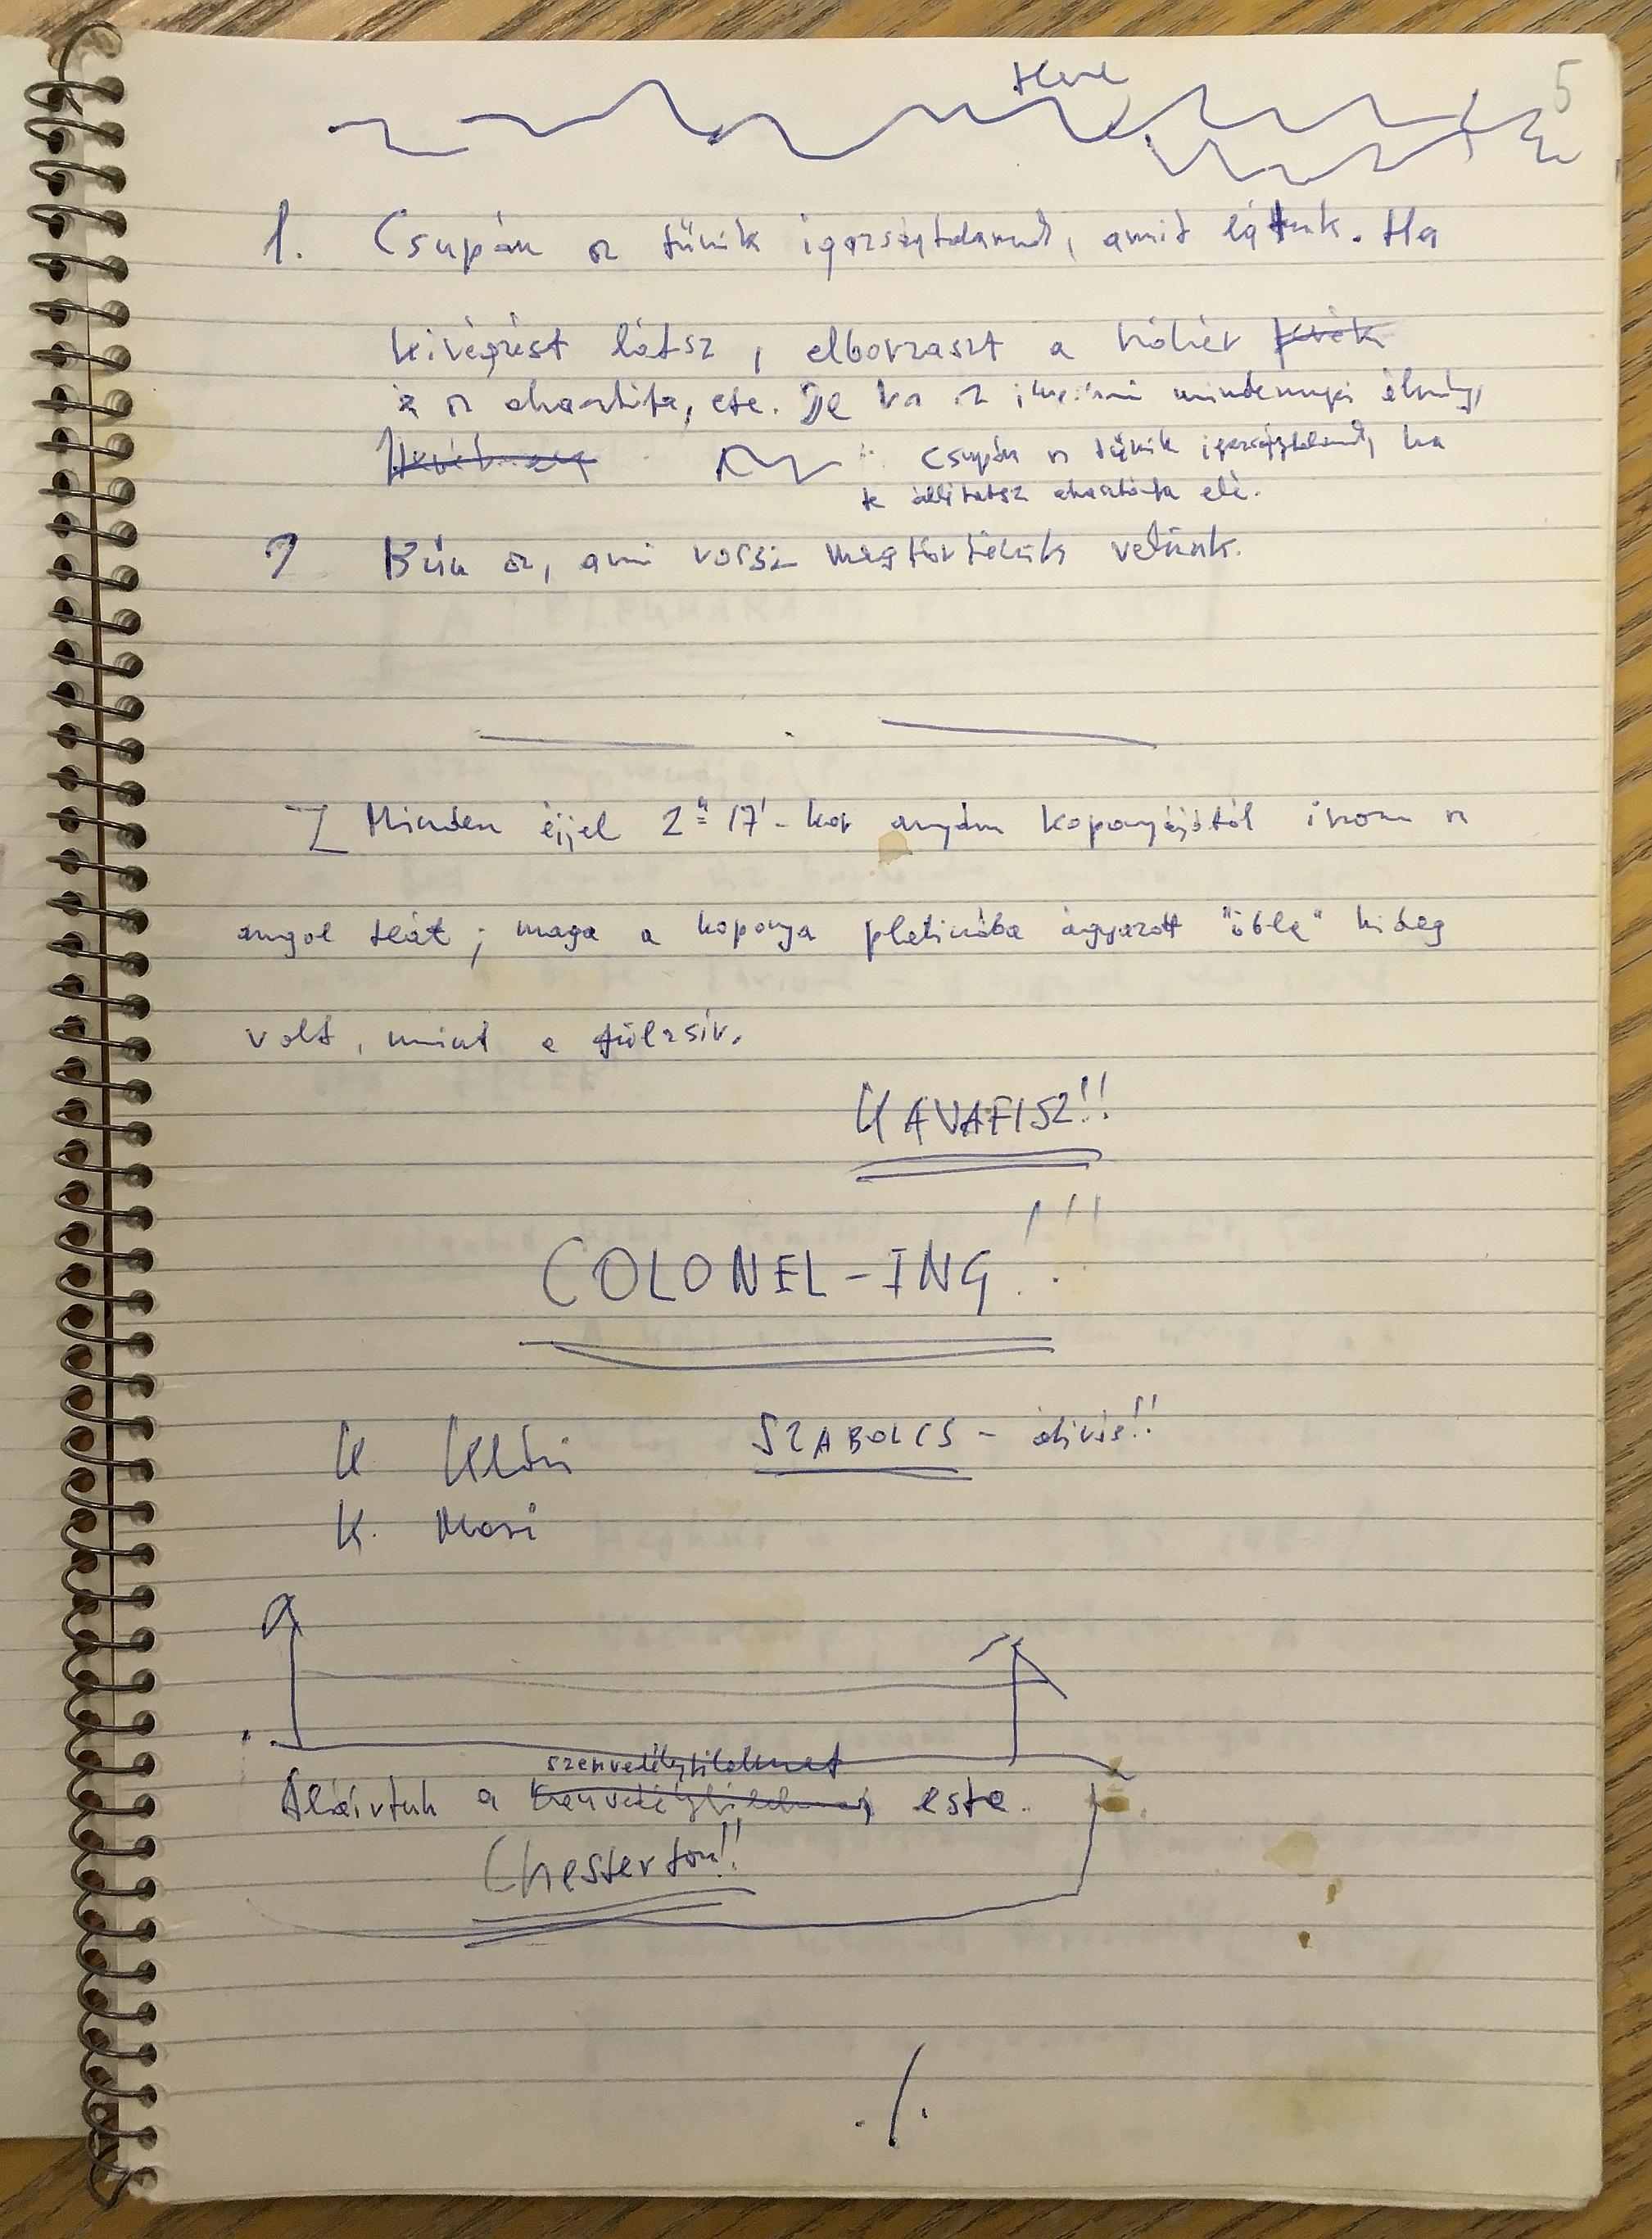 5
1. Csupán az tűnik igazságtalannak, amit látunk. Ha
kivégzést látsz, elborzaszt a hóhér
s az akasztófa, etc. De ha az mindennapi élmény,
Csupán az tűnik igazságtalannak, ha
te állítatsz akasztófa elé.
2 Bűn az, ami rossz megtörténik velünk.
Minden éjjel 2ʰ 17'-kor anyám koponyájától iszom az
angol teát; maga a koponya platinába ágyazott "öble" hideg
volt, mint a
KAVAFISZ!!
COLONEL-ING!!!
K Klári SZABOLCS - átírás!!
K. Mari
szenvedélytilalmat
Aláírtuk a este.
Chesterton!!
./.